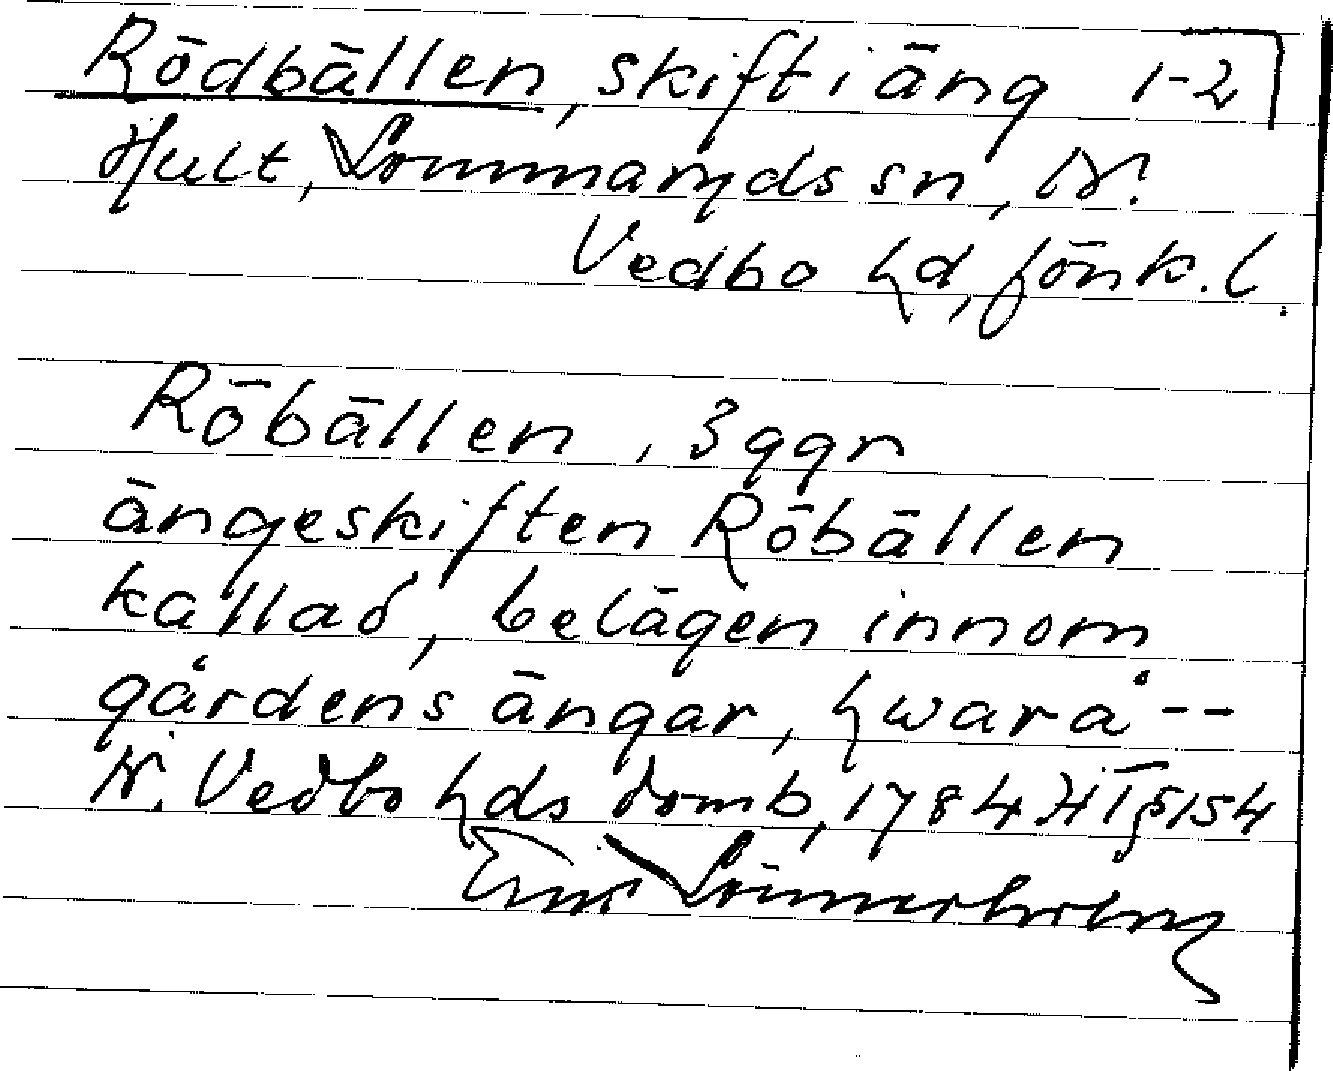 Rödbällen, skift i äng 1-2
Hult, Lommaryds sn, N.
Vedbo hd, Jönk. l.
Röbällen, 3 ggr
ängeskiften Röbällen
kallad, belägen innom
gårdens ängar, hwarå --
N. Vedbo hds domb, 1784 HT § 154
Linnerholm